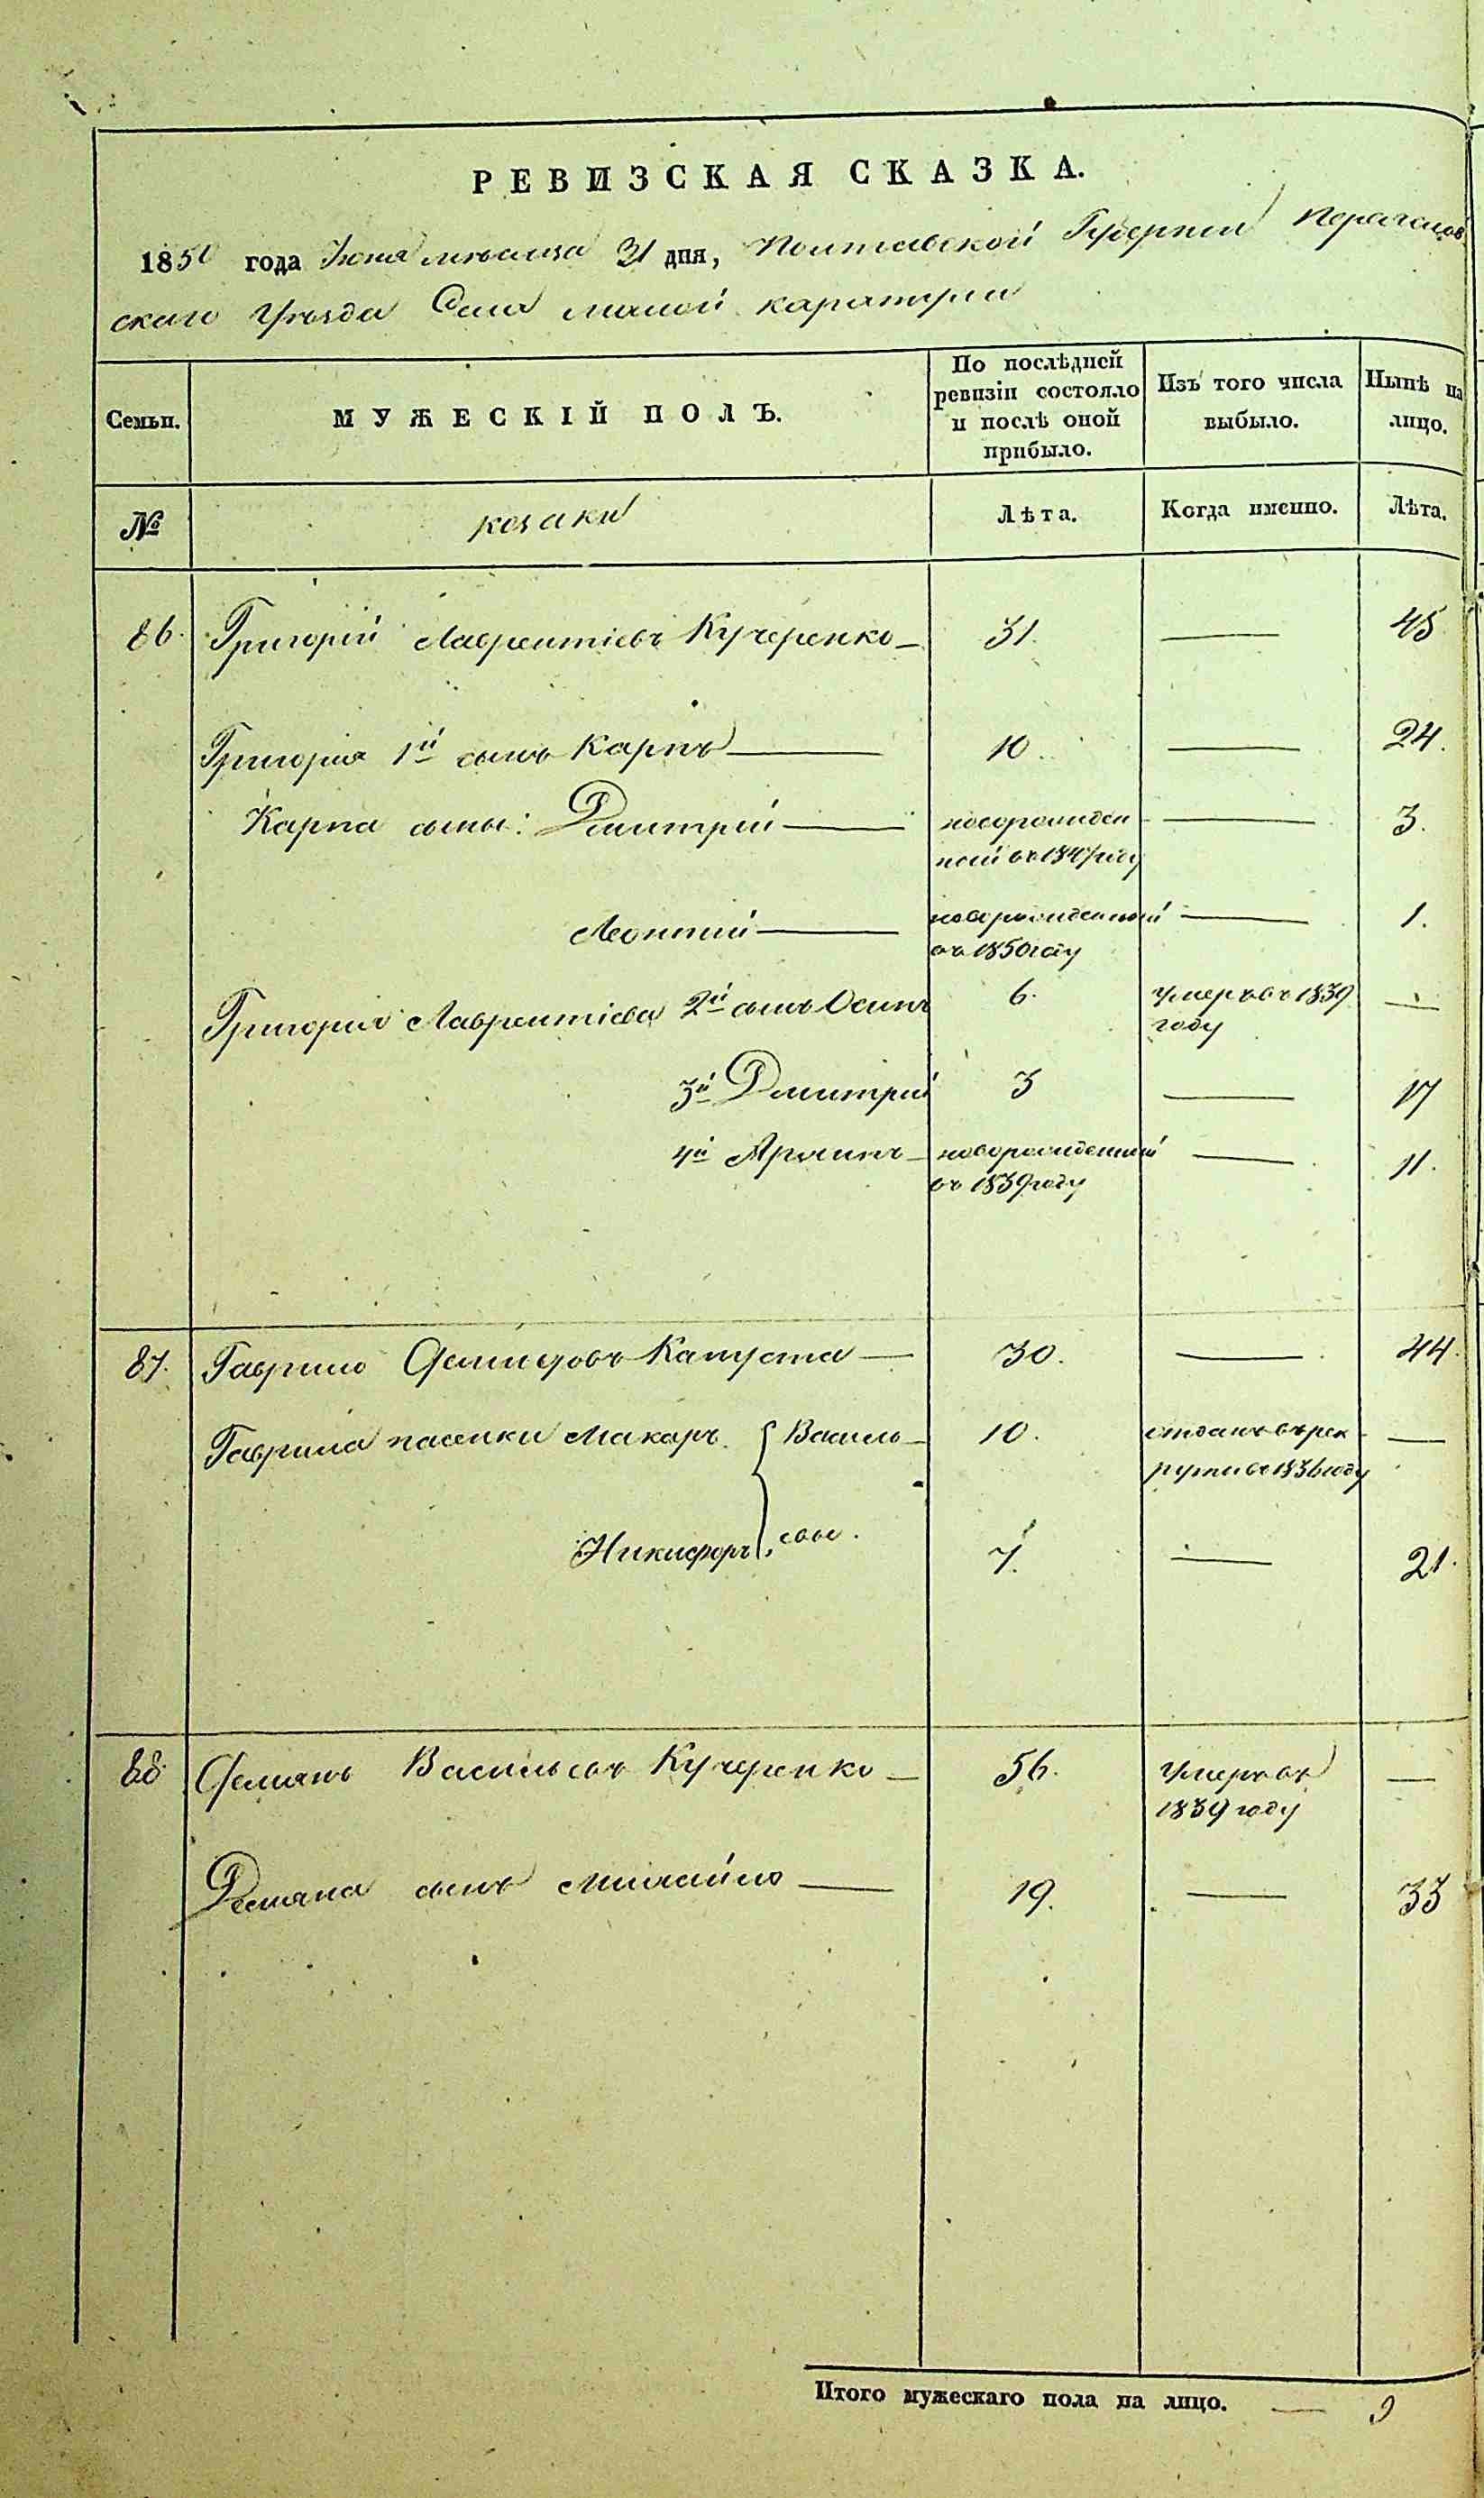 РЕВИЗСКАЯ СКАЗКА.
1850 года Июня мѣсяца 31 дня, Полтавской Губерніи Переяслов
скаго Уѣзда Села малой каратули
Семьи.
МУЖЕСКІЙ ПОЛЪ.
По послѣдней ревизіи состояло и послѣ оной прибыло.
Изъ того числа выбыло.
Нынѣ на лицо.
№
козаки
Лѣта.
Когда именно.
Лѣта.
86. Григорій Лаврентіевъ Кучеренко — 31. — 45
Григорія 1й сынъ Карпъ — 10. — 24.
Карпа сыны: Дмитрій — новорожден — 3.
ный въ 1847 году
Леонтій — новорожденный — 1.
въ 1850 году
Григорія Лаврентіева 2й сынъ Осипъ 6. Умеръ въ 1839 —
году
3й Дмитрій 3 — 17
4й Архипъ — новорожденный — 11.
въ 1839 году
87. Гаврило Демидовъ Капуста — 30. — 44.
Гаврила пасенки Макаръ { Василь — 10. отданъ въ рек —
руты въ 1836 году
Никифоръ евы. 7. — 21.
88. Демянъ Васильевъ Кучеренко — 56. Умеръ въ —
1839 году
Демяна сынъ Михайло — 19. — 33
Итого мужескаго пола на лицо. — 9